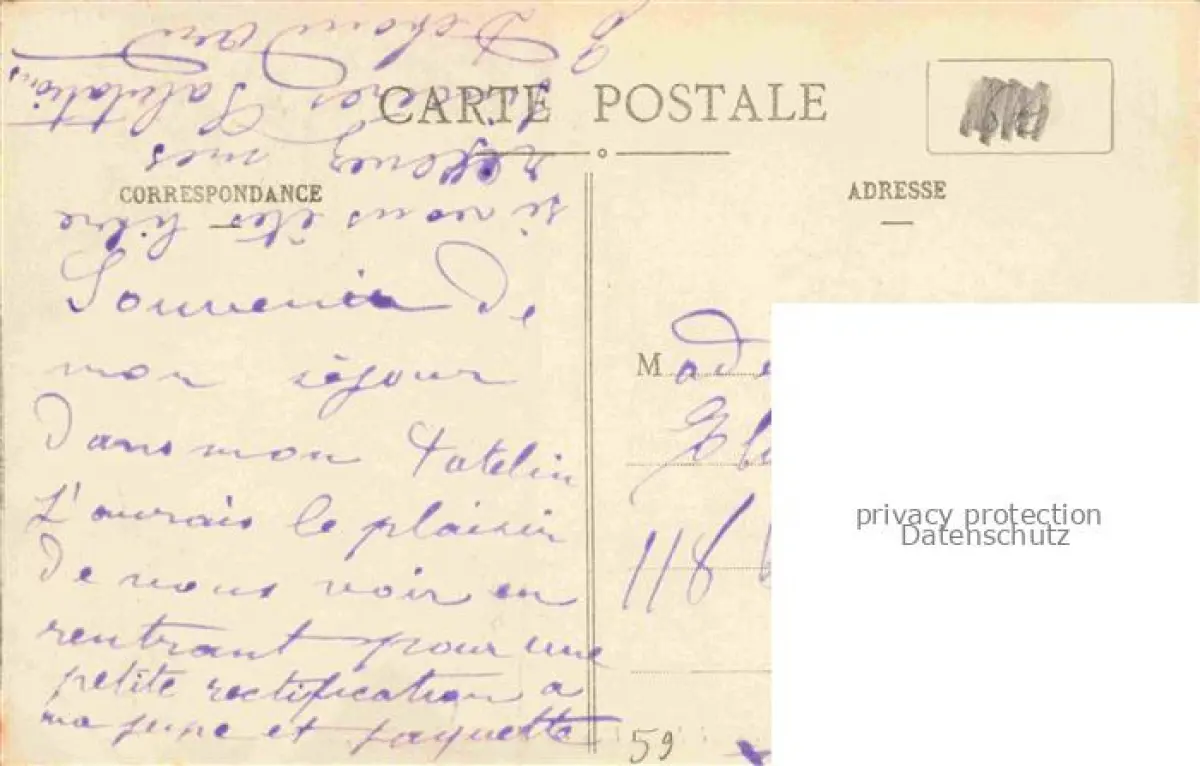 CARTE POSTALE
CORRESPONDANCE
ADRESSE
Souvenir de
mon séjour
dans mon
J'aurais le plaisir
de vous voir en
rentrant pour une
petite rectification a
ma jupe et jaquette
si vous êtes libre
mes
Salutations
M ade
118
59
privacy protection
Datenschutz